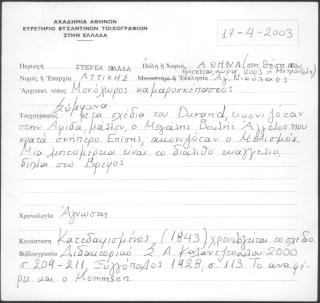 ΑΚΑΔΗΜΙΑ ΑΘΗΝΩΝ
ΕΥΡΕΤΗΡΙΟ ΒΥΖΑΝΤΙΝΩΝ ΤΟΙΧΟΓΡΑΦΙΩΝ
ΣΤΗΝ ΕΛΛΑΔΑ
17-4-2003
Περιοχή ΣΤΕΡΕΑ ΕΛΛΑΔΑ Πόλη ή Χωριό, ΑΘΗΝΑ (στη θέση που
βρίσκεται τώρα, 2003 η Μητρόπολη)
Νομός ή Επαρχία ΑΤΤΙΚΗΣ Μοναστήρι ή Εκκλησία Αγ. Νικόλαος
Αρχιτεκτ. τύπος Μονόχωρος καμαροσκέπαστος
Σύμφωνα
Τοιχογραφίες με τα σχέδια του Durand, εικονιζόταν
στην Αψίδα, μάλλον, ο Μεγάλης Βουλής Άγγελος που
κρατά σκήπτρο. Επίσης, εικονιζόταν ο Μελισμός.
Μια λεπτομέρεια είναι το διάλιθο ευαγγέλιο,
δίπλα στο Βρέφος
Χρονολογία Άγνωστη
Κατάσταση Κατεδαφισμένος, (1843) χρονολογείται το σχέδιο
Βιβλιογραφία Διδακτορικό Σ. Α. Καλαντζοπούλου 2000
σ. 209-211, Ξυγγόπουλος 1928, σ. 113. Το αναφέ-
ρει και ο Mommsen.